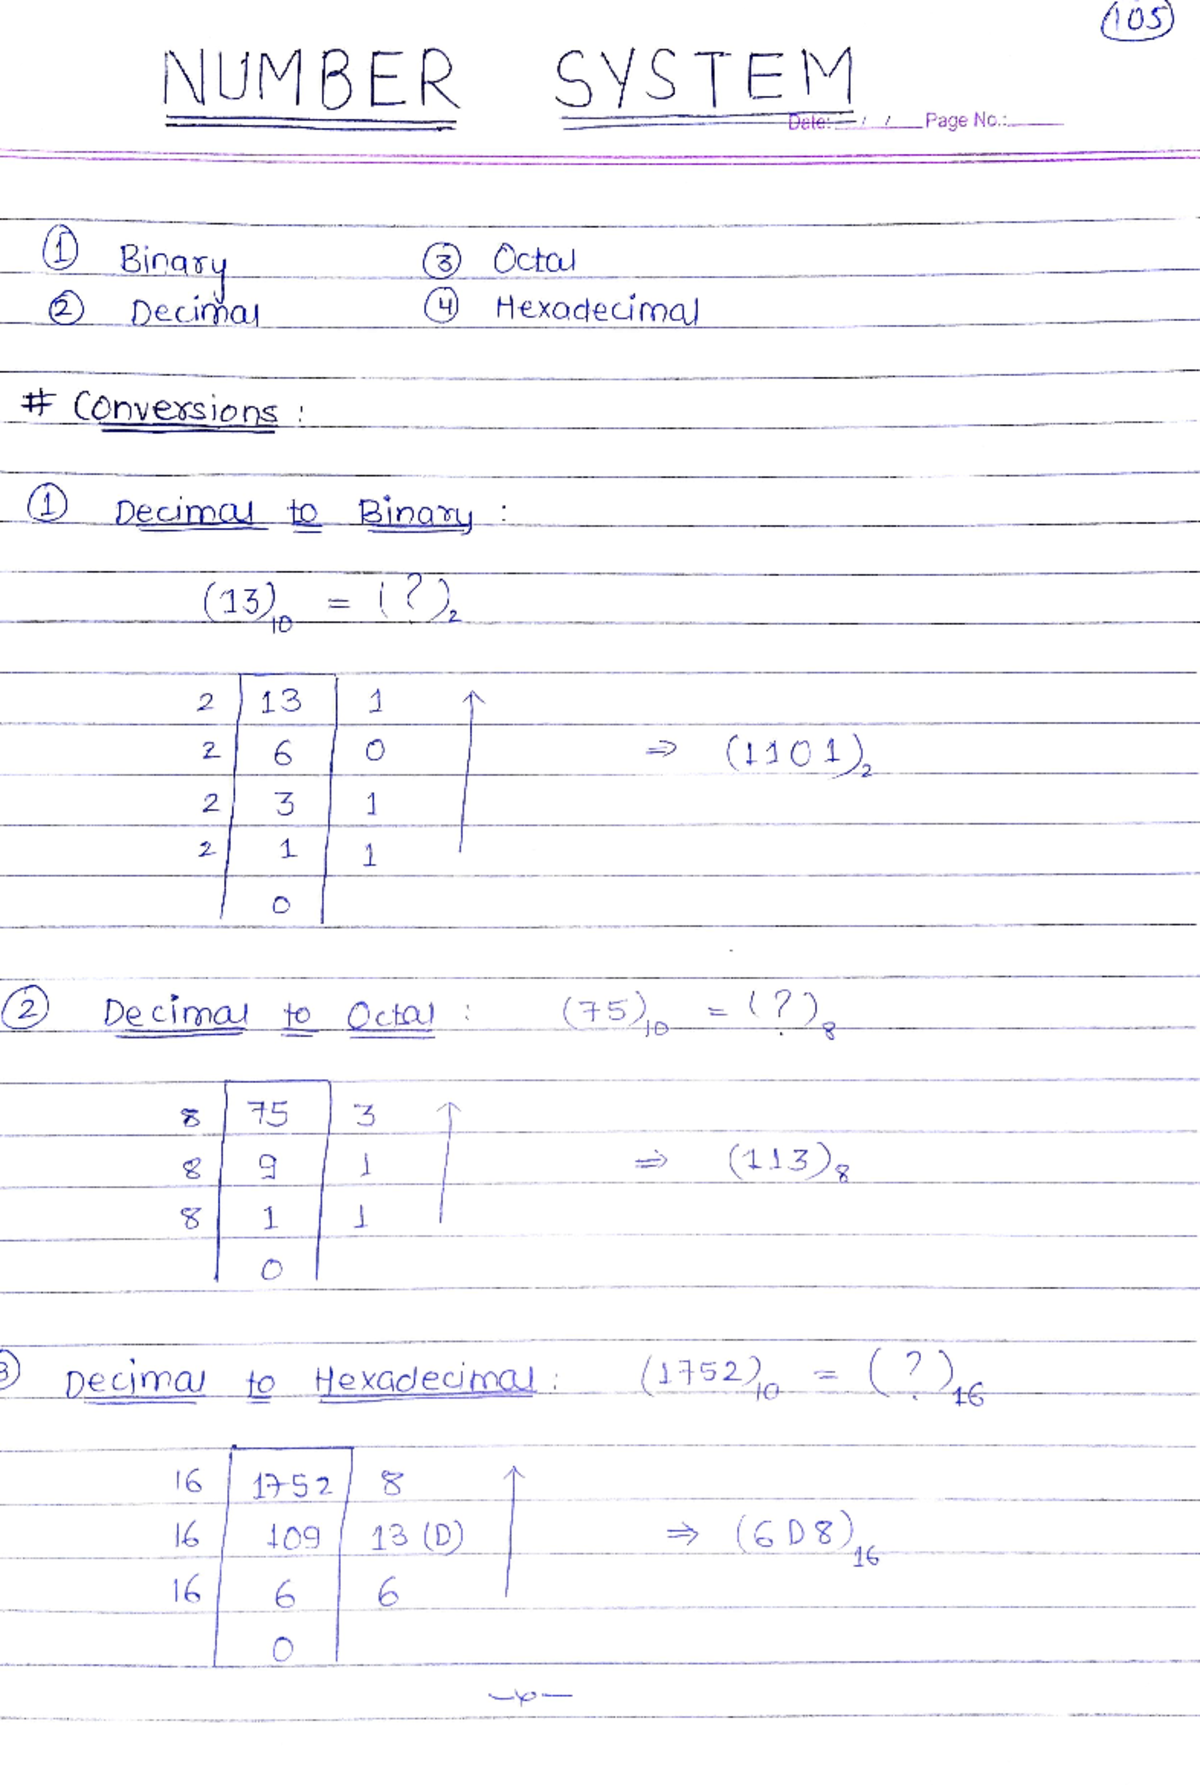 105
NUMBER SYSTEM
Date: / / Page No.:
① Binary ③ Octal
② Decimal ④ Hexadecimal
# Conversions :
① Decimal to Binary :
(13)₁₀ = (?)₂
2 13 1
2 6 0 ⇒ (1101)₂
2 3 1
2 1 1
0
② Decimal to Octal : (75)₁₀ = (?)₈
8 75 3
8 9 1 ⇒ (113)₈
8 1 1
0
③ Decimal to Hexadecimal : (1752)₁₀ = (?)₁₆
16 1752 8
16 109 13 (D) ⇒ (6D8)₁₆
16 6 6
0